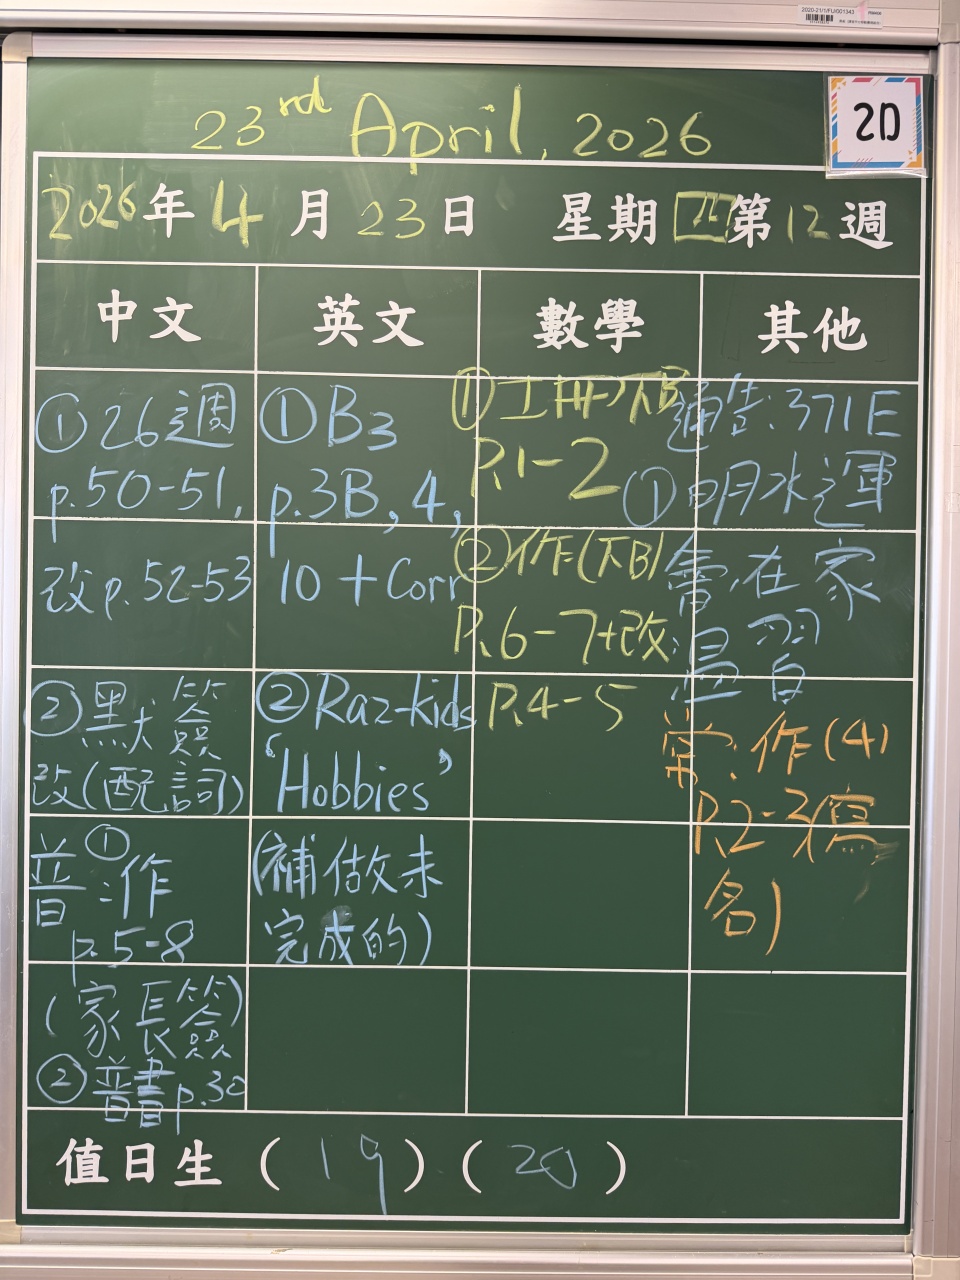 2020-21/1/FU/001343
2D
23rd April, 2026
2026年4月23日 星期四第12週
中文 英文 數學 其他
①26週
p.50-51,
改p.52-53
②默簽
改(配詞)
普:①作
p.5-8
(家長簽)
②普書p.30
①B3
p.3B, 4,
10+Corr
②Raz-kids
'Hobbies'
(補做未
完成的)
①工冊下B
P.1-2
②作(下B)
P.6-7+改
P.4-5
通告:371E
①明水運
會,在家
溫習
常:作(4)
P.2-3(寫
名)
值日生 (19)(20)